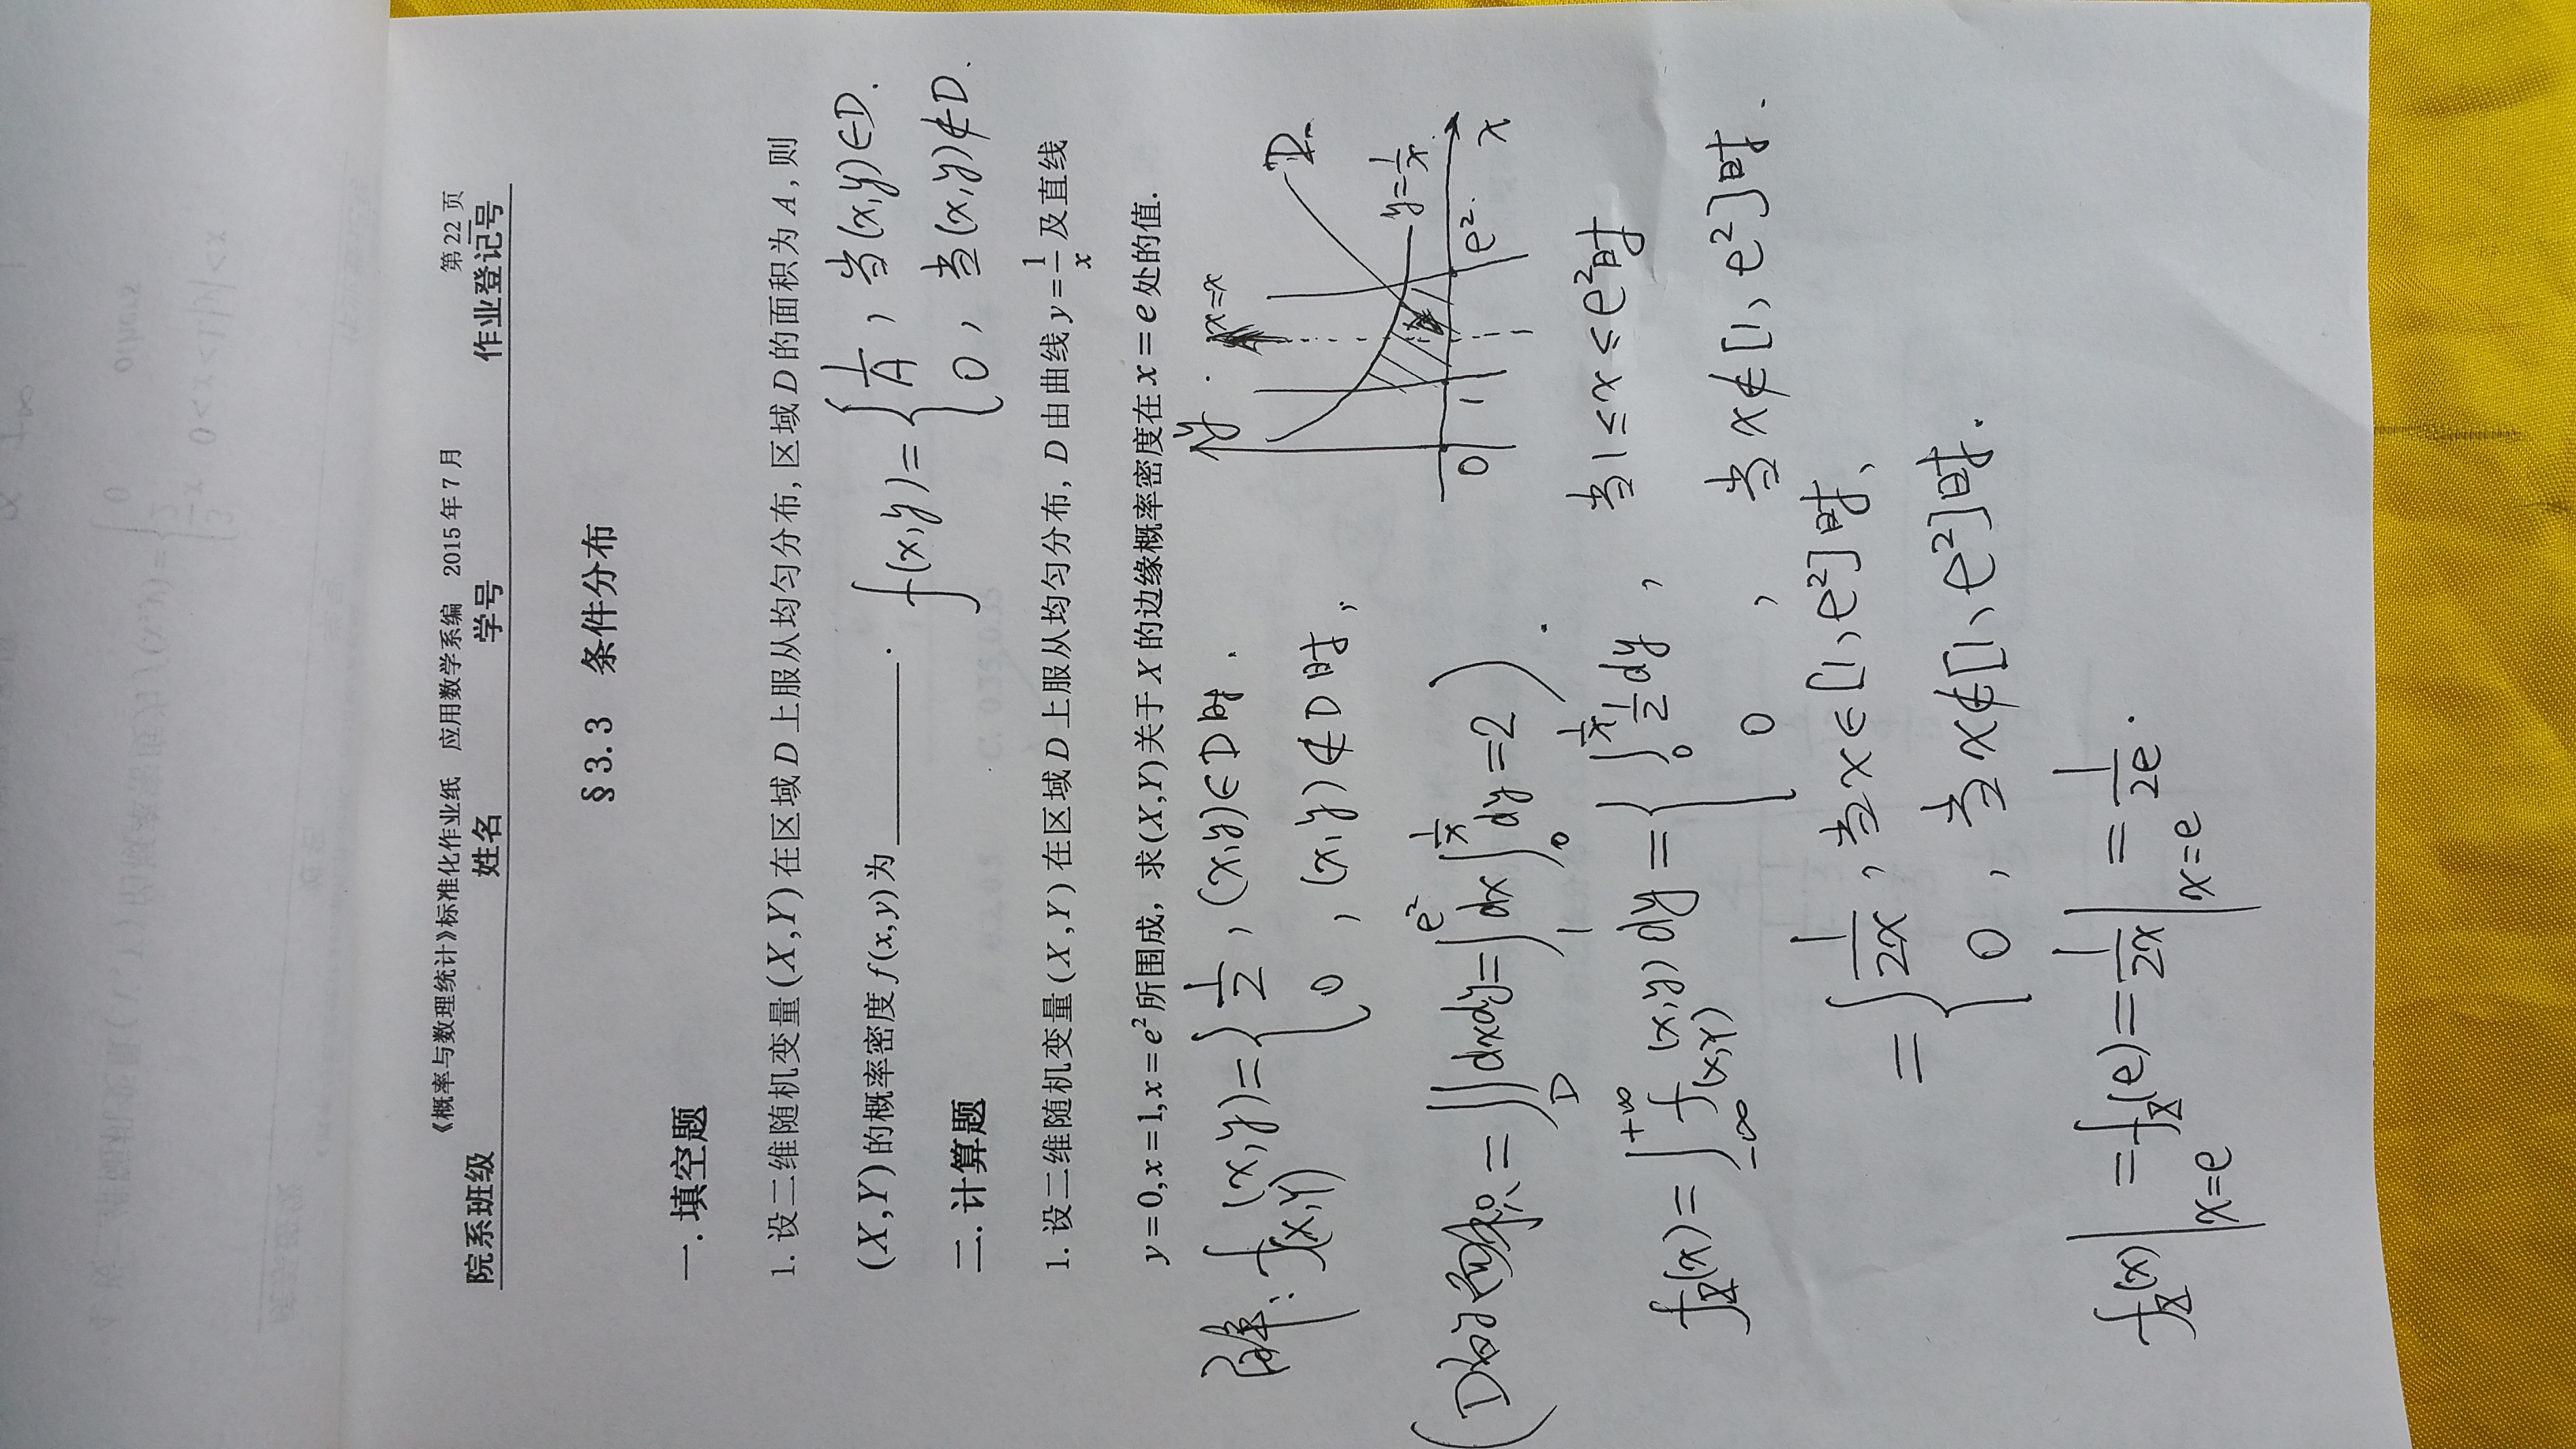 《概率与数理统计》标准化作业纸 应用数学系编 2015年7月 第22页
院系班级 姓名 学号 作业登记号
§3.3 条件分布
一.填空题
1. 设二维随机变量(X,Y)在区域D上服从均匀分布, 区域D的面积为A, 则
(X,Y)的概率密度f(x,y)为________.
f(x,y)={1/A, 当(x,y)∈D.
0, 当(x,y)∉D.
二.计算题
1. 设二维随机变量(X,Y)在区域D上服从均匀分布, D由曲线y=1/x及直线
y=0,x=1,x=e²所围成，求(X,Y)关于X的边缘概率密度在x=e处的值.
解: f_(X,Y)(x,y)={1/2, (x,y)∈D时.
0, (x,y)∉D时,
y x=x
D
y=1/x
0 1 e² x
(D的面积=∬_D dxdy=∫_1^{e²}dx∫_0^{1/x}dy=2).
f_X(x)=∫_{-∞}^{+∞}f_(X,Y)(x,y)dy={∫_0^{1/x}1/2dy, 当1≤x≤e²时
0, 当x∉[1,e²]时.
={1/2x, 当x∈[1,e²]时,
0, 当x∉[1,e²]时.
f_X(x)|_{x=e}=f_X(e)=1/2x|_{x=e}=1/2e.